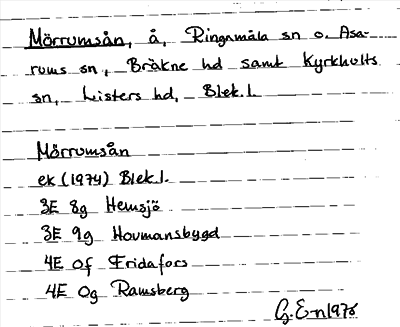 Mörrumsån, å, Ringamåla sn o. Asa-
rums sn, Bräkne hd samt Kyrkhults
sn, Listers hd, Blek.l.
Mörrumsån
ek (1974) Blek.l.
3E 8g Hemsjö
3E 9g Hovmansbygd
4E 0f Fridafors
4E 0g Ramsberg
G.E-n 1978